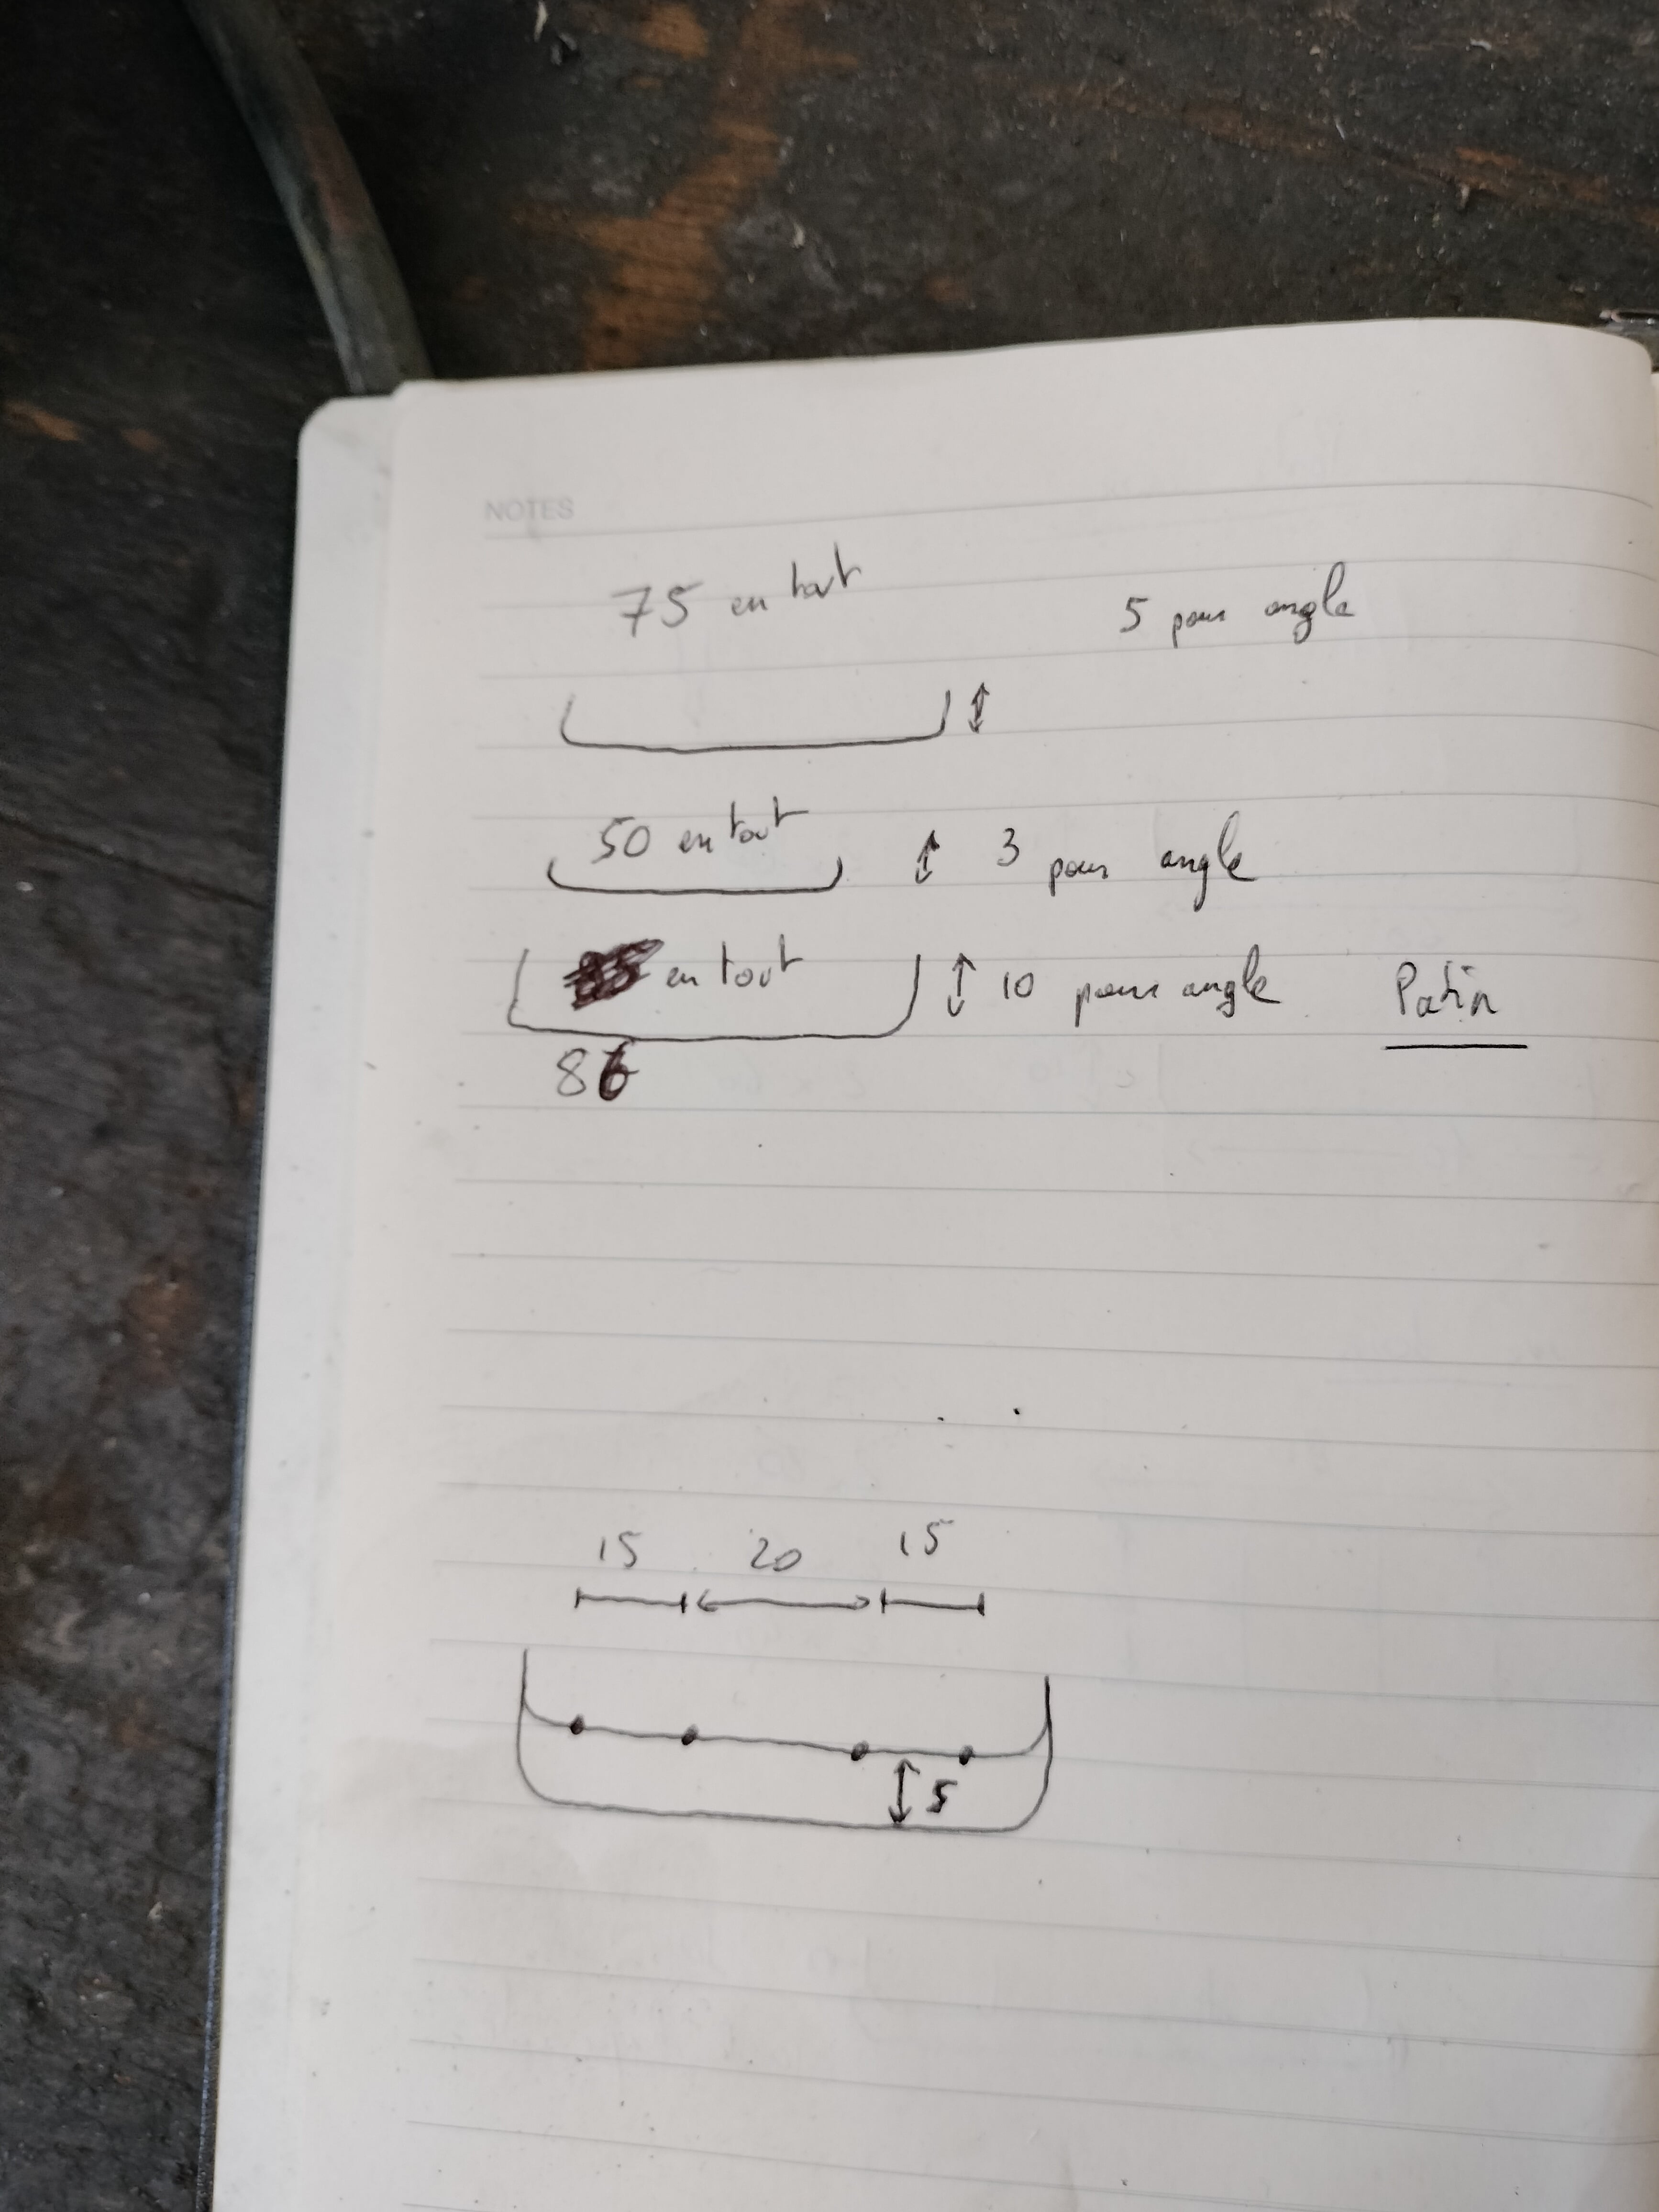 NOTES
75 en tout
5 pour angle
50 en tout 3 pour angle
en tout 10 pour angle Patin
86
15 20 15
5